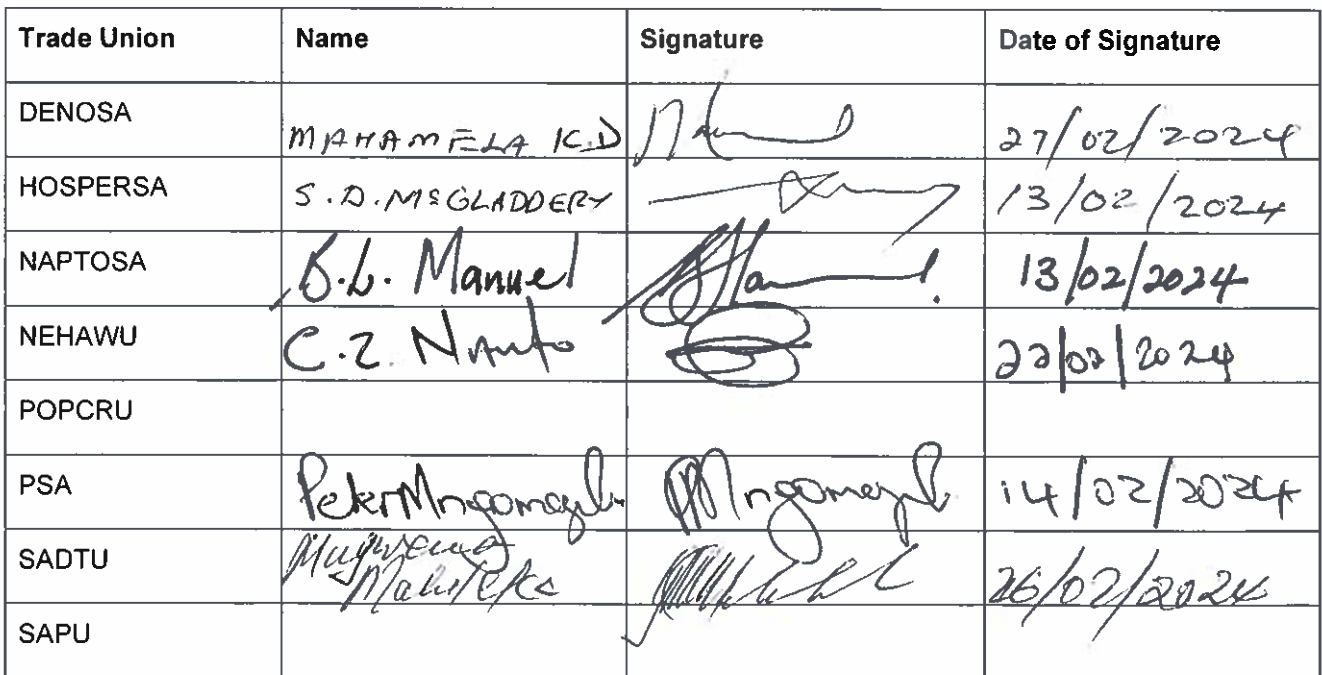 Trade Union Name Signature Date of Signature
DENOSA MAHAMELA K.D 27/02/2024
HOSPERSA S.D. McGLADDERY 13/02/2024
NAPTOSA B.L. Manuel 13/02/2024
NEHAWU C.Z. 22/02/2024
POPCRU
PSA Peter Mngomezulu PMngomezulu 14/02/2024
SADTU Mugwena Maluleke 26/02/2024
SAPU